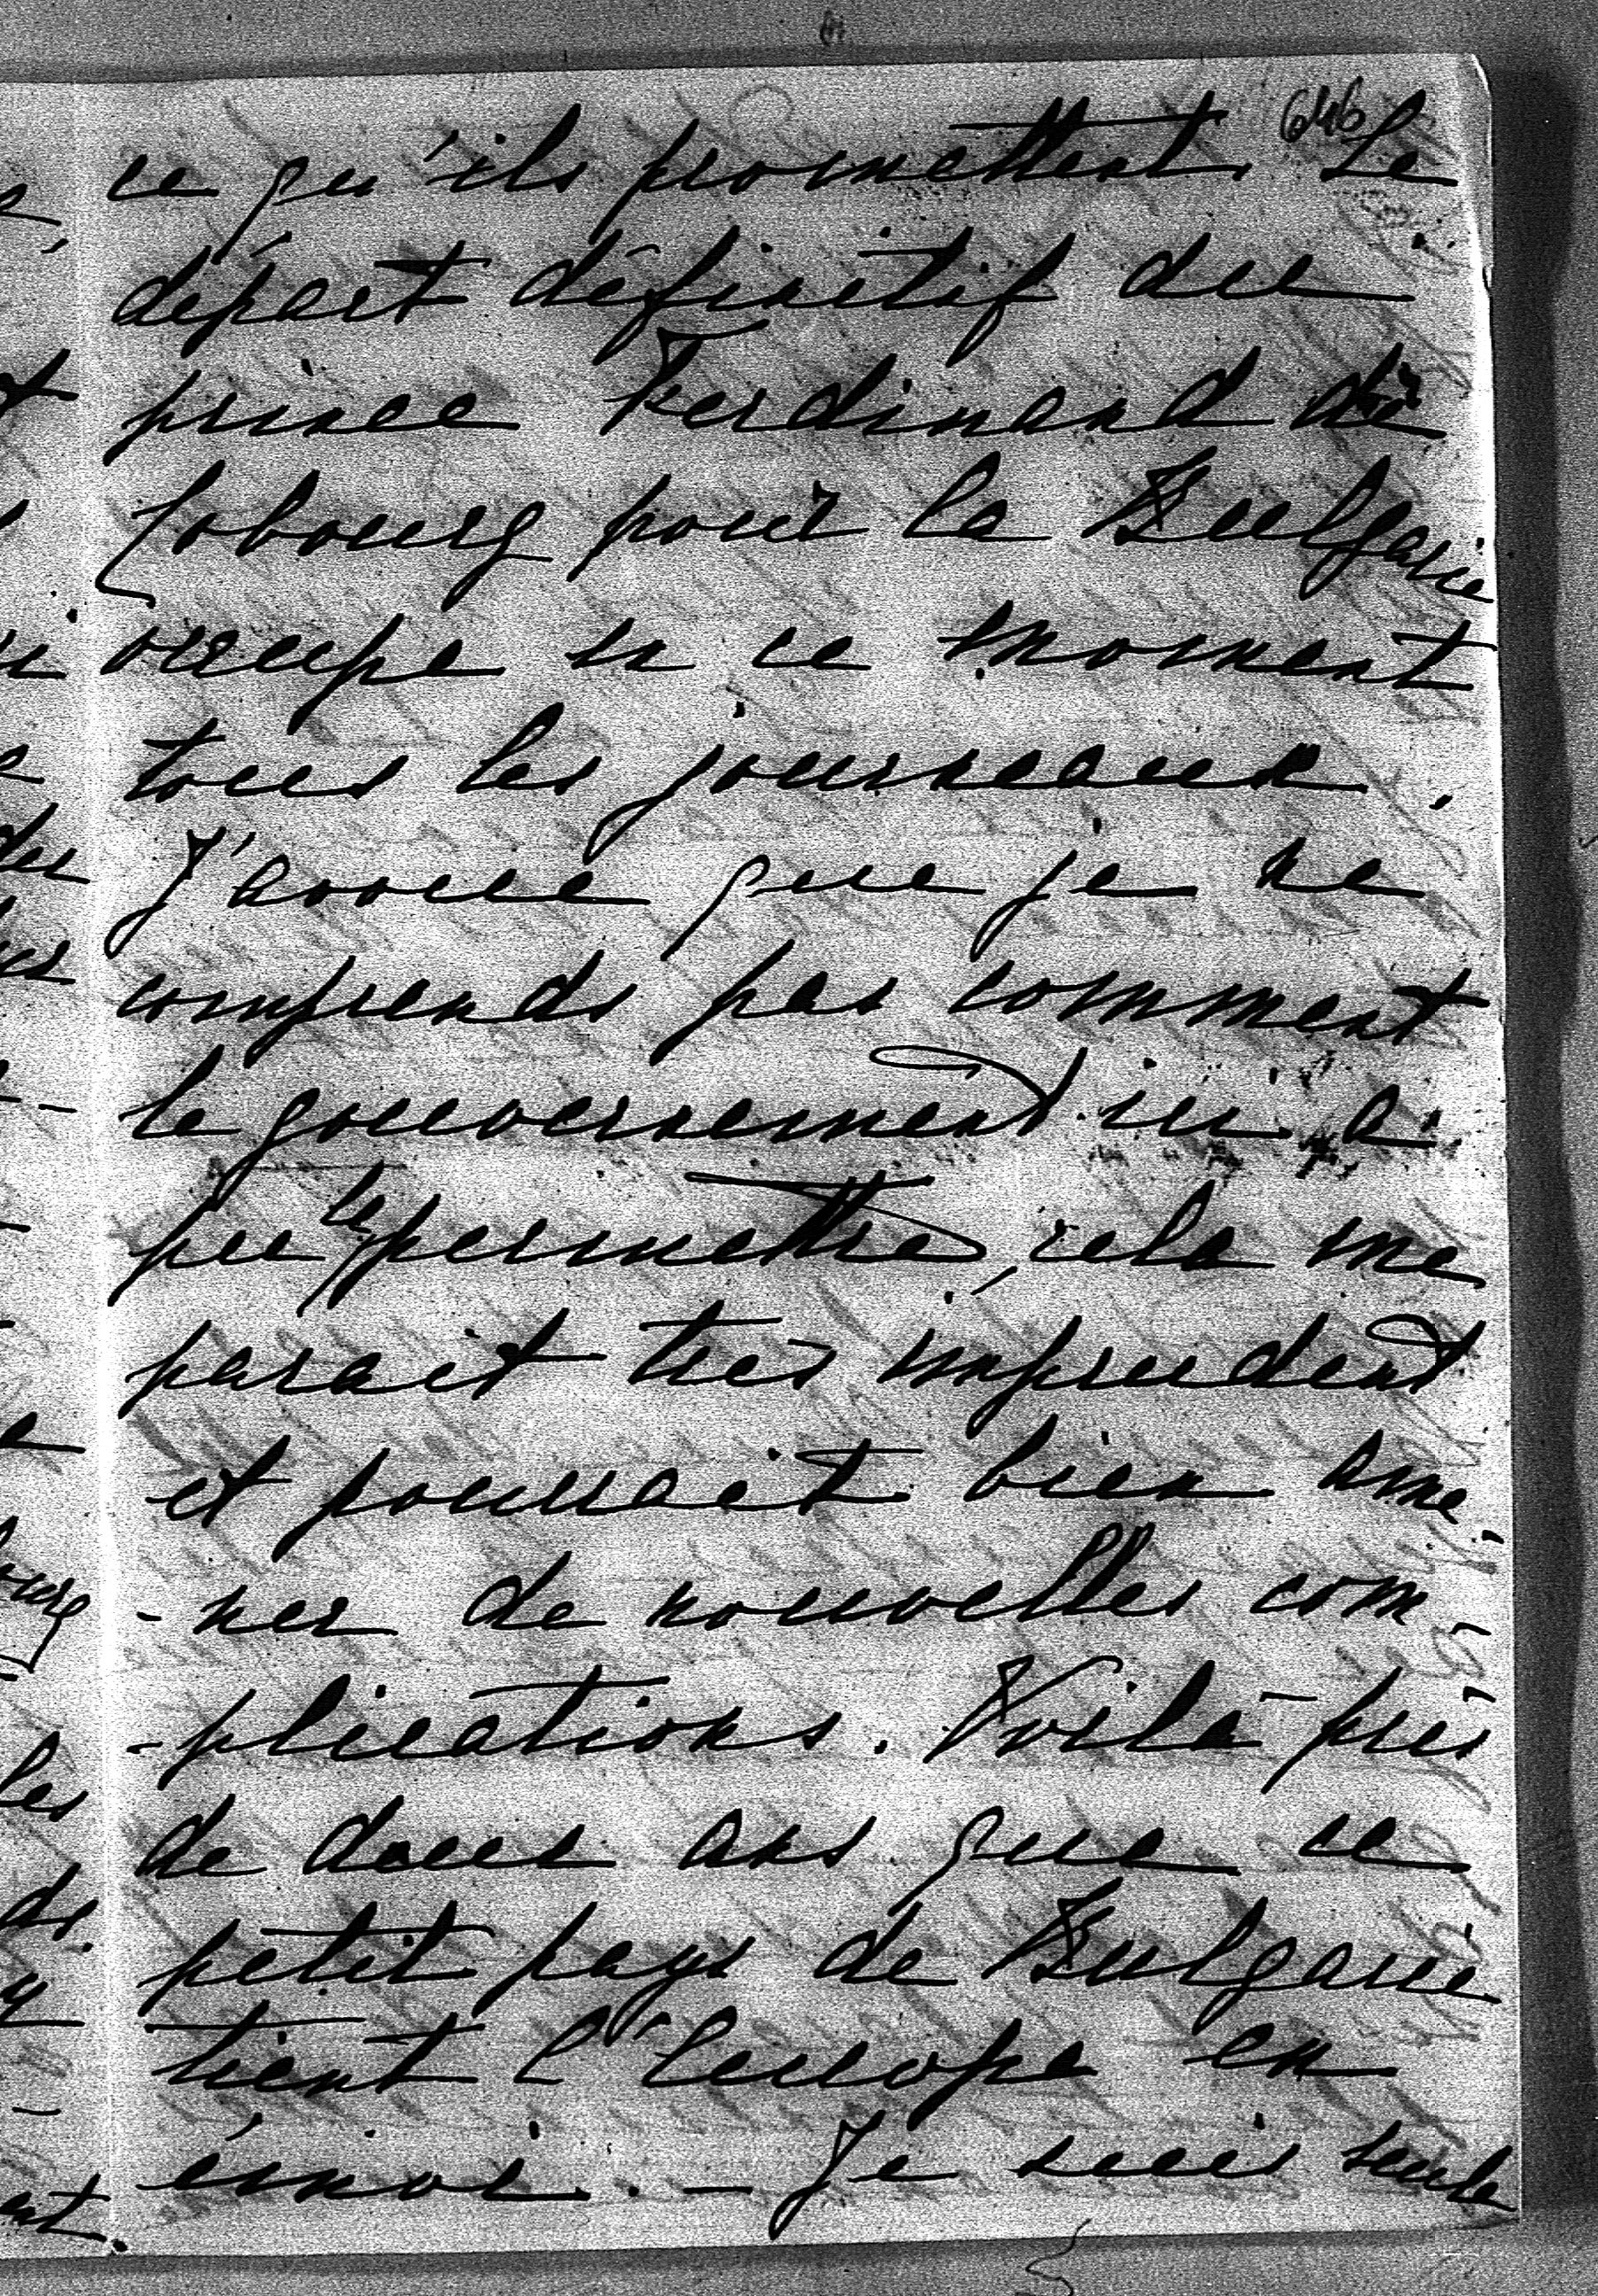 646
ce qu'ils promettent. Le
départ définitif du
prince Ferdinand de
Cobourg pour la Bulgarie
occupe en ce moment
tous les journeaux.
J'avoue que je ne
comprends pas comment
le gouvernement ici a
pu le permettre, cela me
parait très imprudent
et pourrait bien ame-
-ner de nouvelles com-
-plications. Voilà près
de deux ans que ce
petit pays de Bulgarie
tient l'Europe en
émoi. - Je suis seule